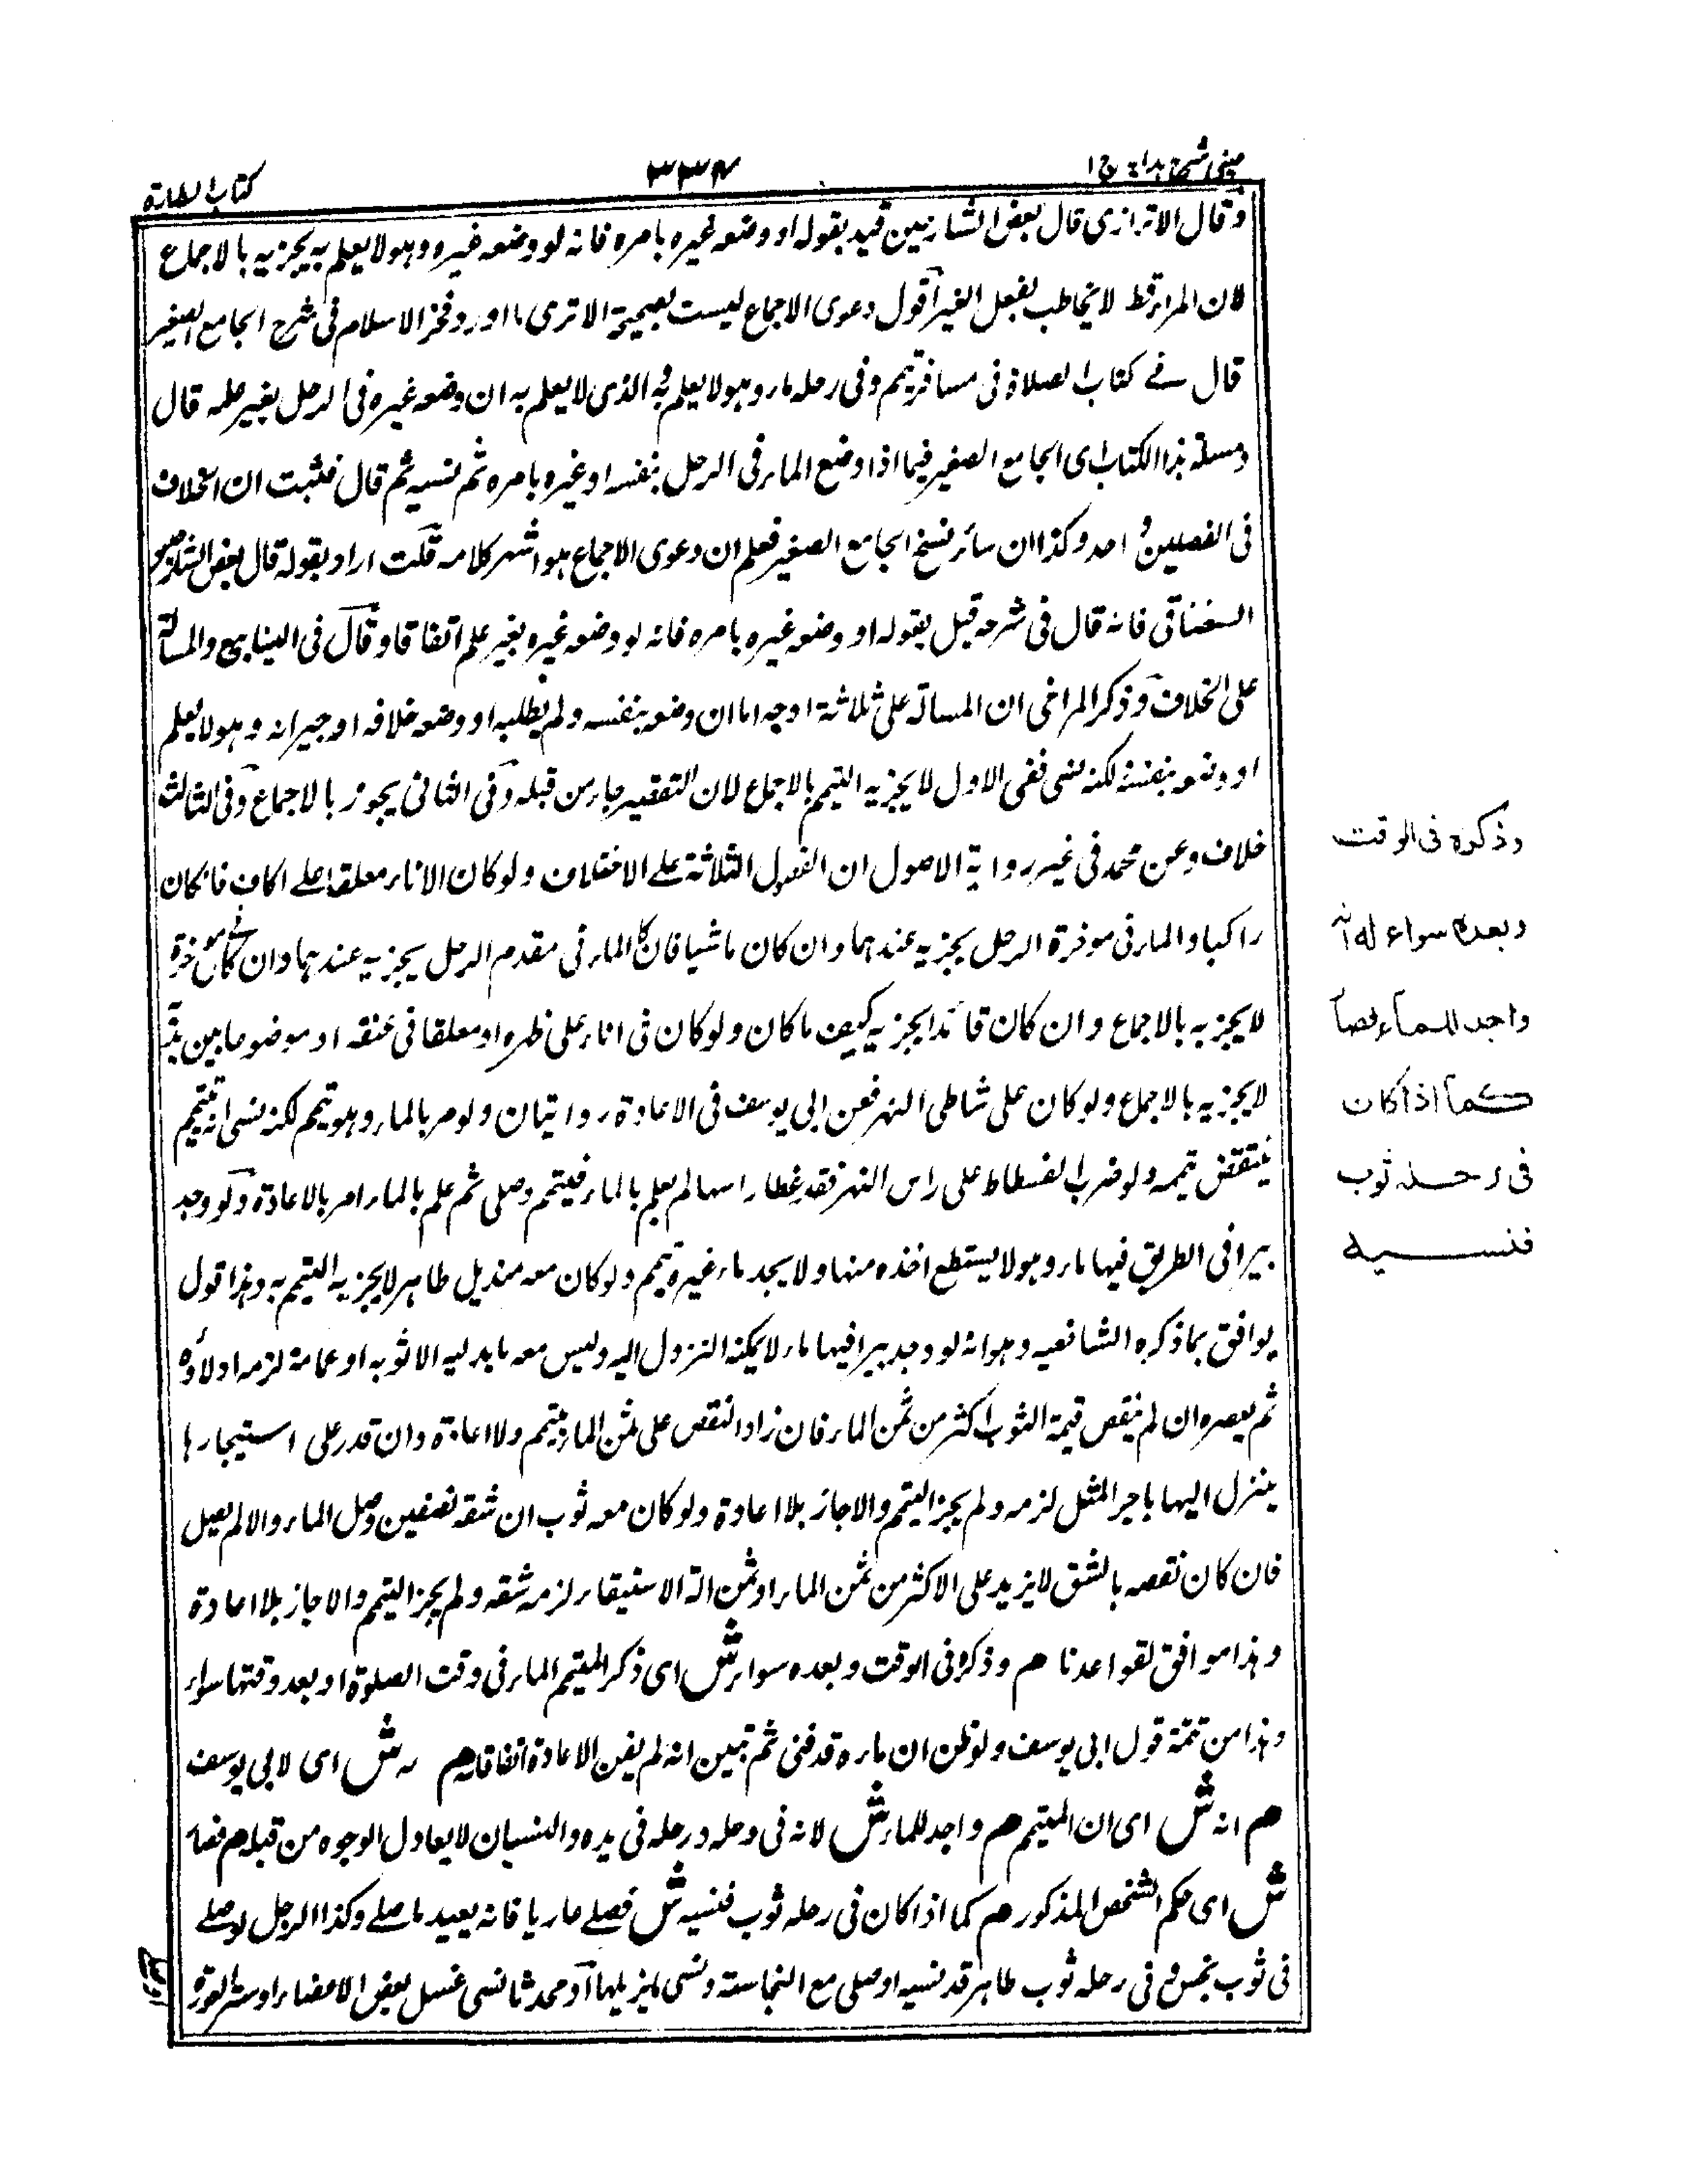 عینی شرح ہدایہ ج ا
٣٣٤
کتاب الطہارة
وقال الاترازی قال بعض الشارحین قید بقوله او وضعه غیره بامره فانه لو وضعه غیره وهو لا یعلم به یجزیه بالاجماع
لان المرء قط لا یخاطب بفعل الغیر اقول دعوی الاجماع لیست بصحیحة الا تری ما اورد فخر الاسلام فی شرح الجامع الصغیر
قال فی کتاب الصلاة فی مسافر تیمم وفی رحله ماء وهو لا یعلم به الذی لا یعلم به ان وضعه غیره فی الرحل بغیر علمه قال
ومسئلة هذا الکتاب ای الجامع الصغیر فیما اذا وضع الماء فی الرحل بنفسه او غیره بامره ثم نسیه ثم قال فثبت ان الخلاف
فی الفصلین واحد وکذا ان سائر نسخ الجامع الصغیر فعلم ان دعوی الاجماع هو اشهر کلامه قلت اراد بقوله قال بعض الشارحین
السغناقی فانه قال فی شرحه قیل بقوله او وضعه غیره بامره فانه لو وضعه غیره بغیر علم اتفاقا وقال فی الینابیع والمسألة
علی الخلاف وذکر المراخی ان المسألة علی ثلاثة اوجه اما ان وضعه بنفسه ولم یطلبه او وضعه خلافه او جیرانه وهو لا یعلم
او وضعه بنفسه لکنه نسی ففی الاول لا یجزیه التیمم بالاجماع لان التقصیر جاء من قبله وفی الثانی یجوز بالاجماع وفی الثالث
خلاف وعن محمد فی غیر روایة الاصول ان الفصول الثلاثة علی الاختلاف ولو کان الاناء معلقا علی اکاف فان کان
راکبا والماء فی موخرة الرحل یجزیه عندهما وان کان ماشیا فان کان الماء فی مقدم الرحل یجزیه عندهما وان کان فی موخرة
لا یجزیه بالاجماع وان کان قائدا یجزیه کیف ما کان ولو کان فی اناء علی ظهره او معلقا فی عنقه او موضوعا بین یدیه
لا یجزیه بالاجماع ولو کان علی شاطی النهر فعن ابی یوسف فی الاعادة روایتان ولو مر بالماء وهو تیمم لکنه نسی انه تیمم
ینتقض تیممه ولو ضرب الفسطاط علی راس النهر فقد غطا راسها لم یعلم بالماء فیتمم وصلی ثم علم بالماء امر بالاعادة ولو وجد
بیرا فی الطریق فیها ماء وهو لا یستطع اخذه منها ولا یجد ماء غیره تیمم ولو کان معه مندیل طاهر لا یجزیه التیمم به وهذا قول
یوافق بما ذکره الشافعیه وهو انه لو وجد بیرا فیها ماء لا یمکنه النزول الیه ولیس معه ما یدلیه الا ثوبه او عمامة لزمه ادلاؤه
ثم یعصره ان لم ینقص قیمة الثوب اکثر من ثمن الماء فان زاد النقص علی ثمن الماء یتیمم ولا اعادة وان قدر علی استیجارها
ینزل الیها باجر المثل لزمه ولم یجز التیمم والا جاز بلا اعادة ولو کان معه ثوب ان شقه نصفین وصل الماء والا لم یصل
فان کان نقصه بالشق لا یزید علی الاکثر من ثمن الماء او ثمن الة الاستیقاء لزمه شقه ولم یجز التیمم والا جاز بلا اعادة
وهذا موافق لقواعدنا هم وذکره فی الوقت وبعده سواء ش ای ذکر المتیمم الماء فی وقت الصلوة او بعد وقتها سواء
وهذا من تتمة قول ابی یوسف ولو ظن ان ماءه قد فنی ثم تبین انه لم یفن الاعادة اتفاقا هم له ش ای لابی یوسف
هم انه ش ای ان المتیمم هم واجد للماء ش لانه فی رحله ورحله فی یده والنسیان لا یعادل الوجوه من قبله هم فصار
ش ای حکم الشخص المذکور هم کما اذا کان فی رحله ثوب فنسیه ش فصلی عاریا فانه یعید ما صلی وکذا الرجل لو صلی
فی ثوب نجس وفی رحله ثوب طاهر قد نسیه او صلی مع النجاسة ونسی ما یزیلها او محدثا نسی غسل بعض الاعضاء او ستر العورة
وذکره فی الوقت
وبعده سواء له انه
واجد للمآء فصآ
کمآ اذا کان
فی رحله ثوب
فنسیه